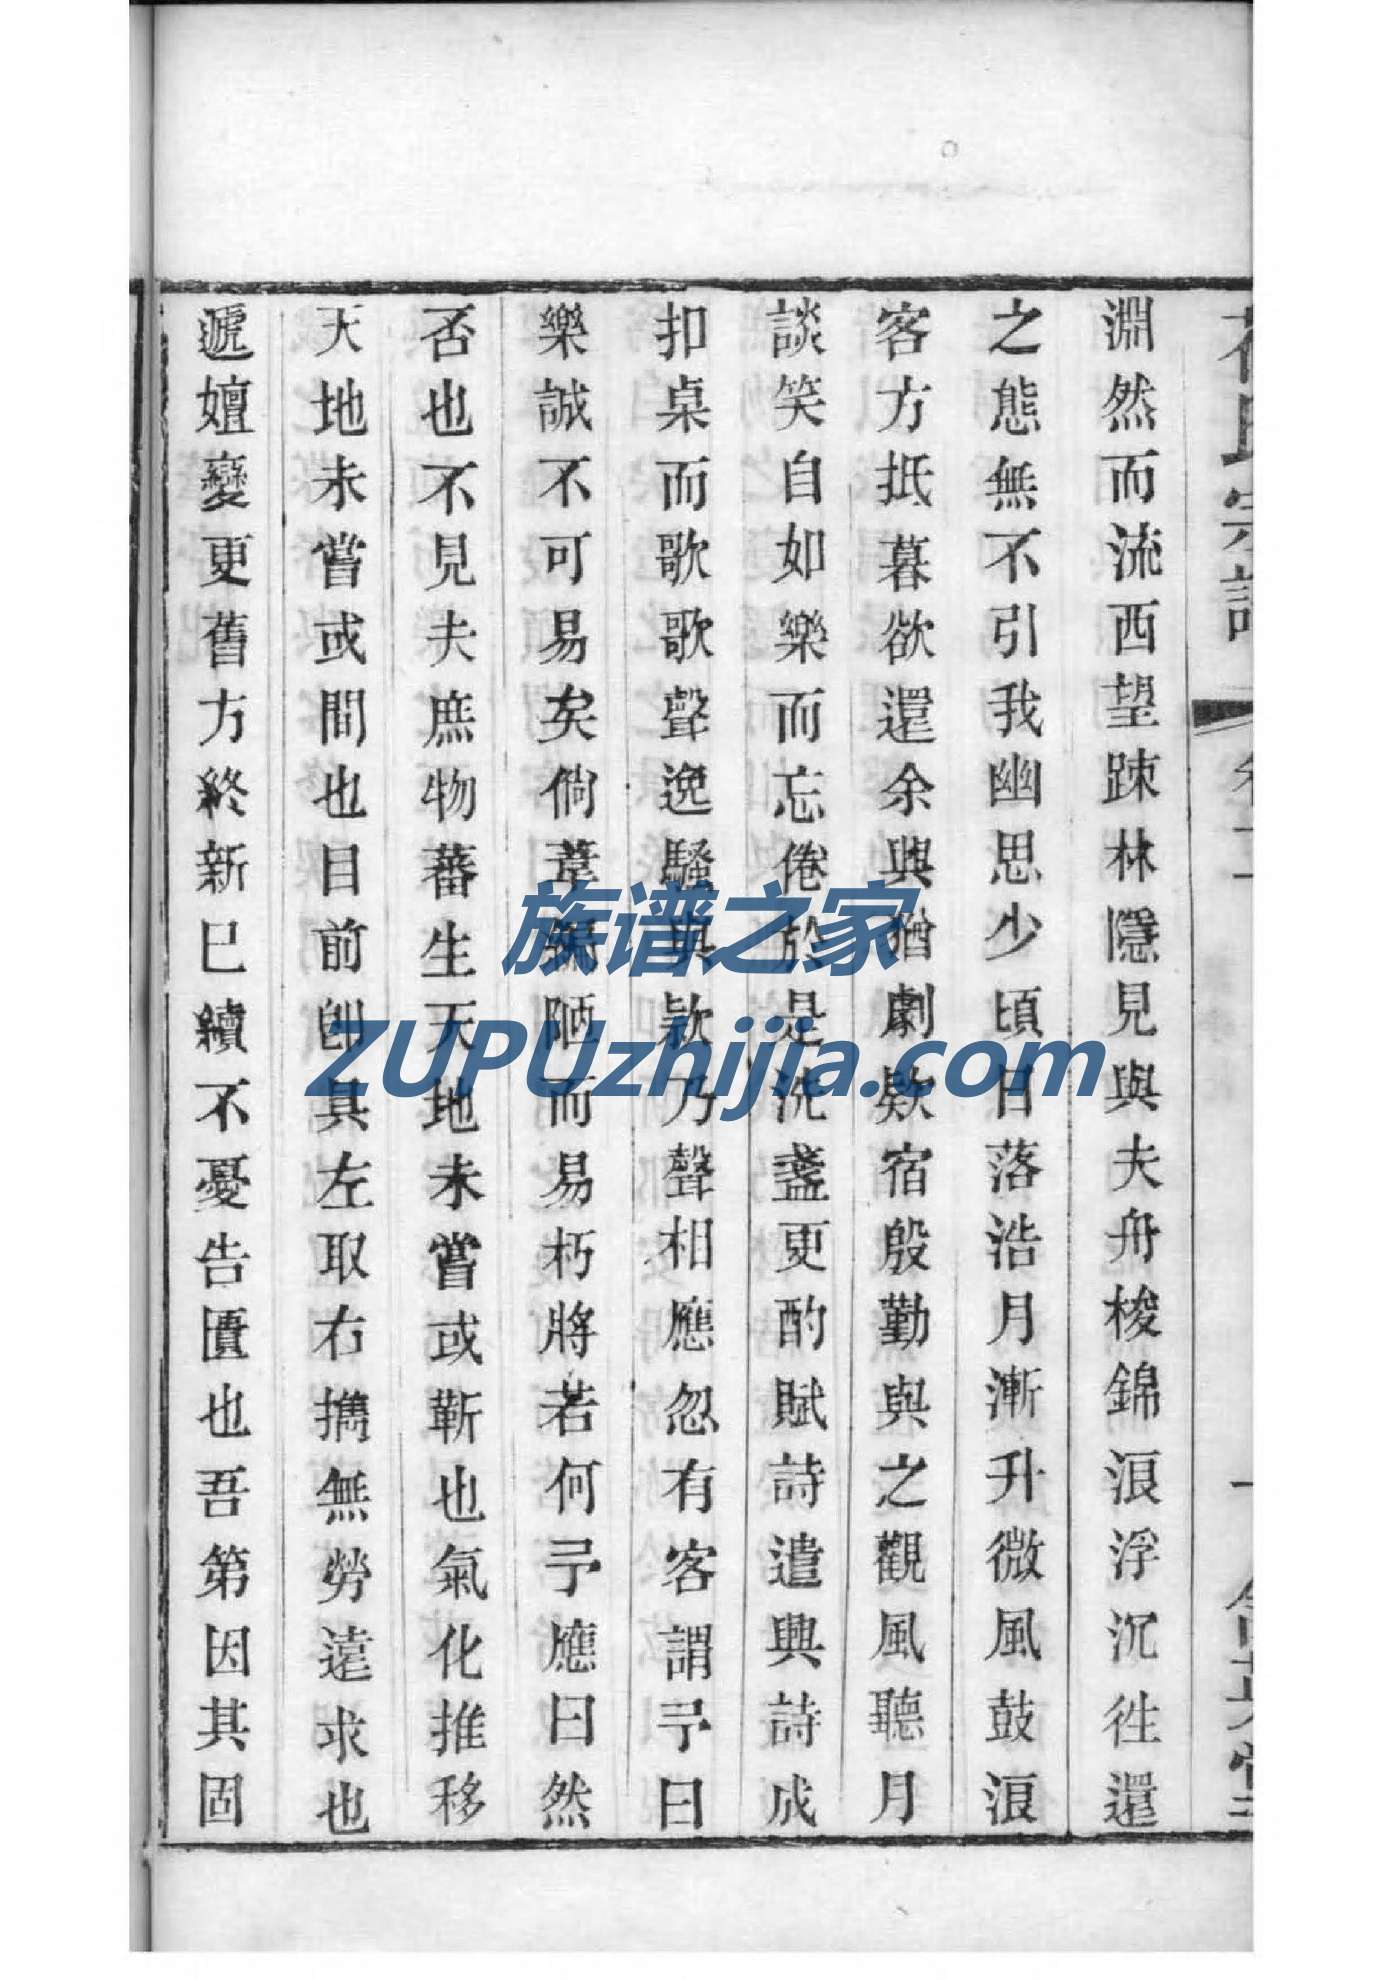 淵然而流西望踈林隱見與夫舟梭錦浪浮沉徃還
之態無不引我幽思少頃日落浩月漸升微風鼓浪
客方抵暮欲還余與猶劇欵宿殷勤與之觀風聽月
談笑自如樂而忘倦於是洗盞更酌賦詩遣興詩成
扣桌而歌歌聲逸騷與欵乃聲相應忽有客謂予曰
樂誠不可易矣倘葦編陋而易朽將若何予應曰然
否也不見夫庶物蕃生天地未嘗或靳也氣化推移
天地未嘗或間也目前卽具左取右擕無勞遠求也
遞嬗變更舊方終新巳續不憂告匱也吾第因其固
族谱之家
ZUPUzhijia.com